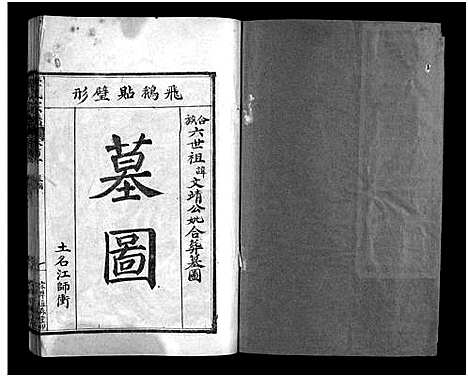 飛鵝貼壁形
合族六世祖諱文靖公妣合葬墓圖
墓圖
土名江師衝